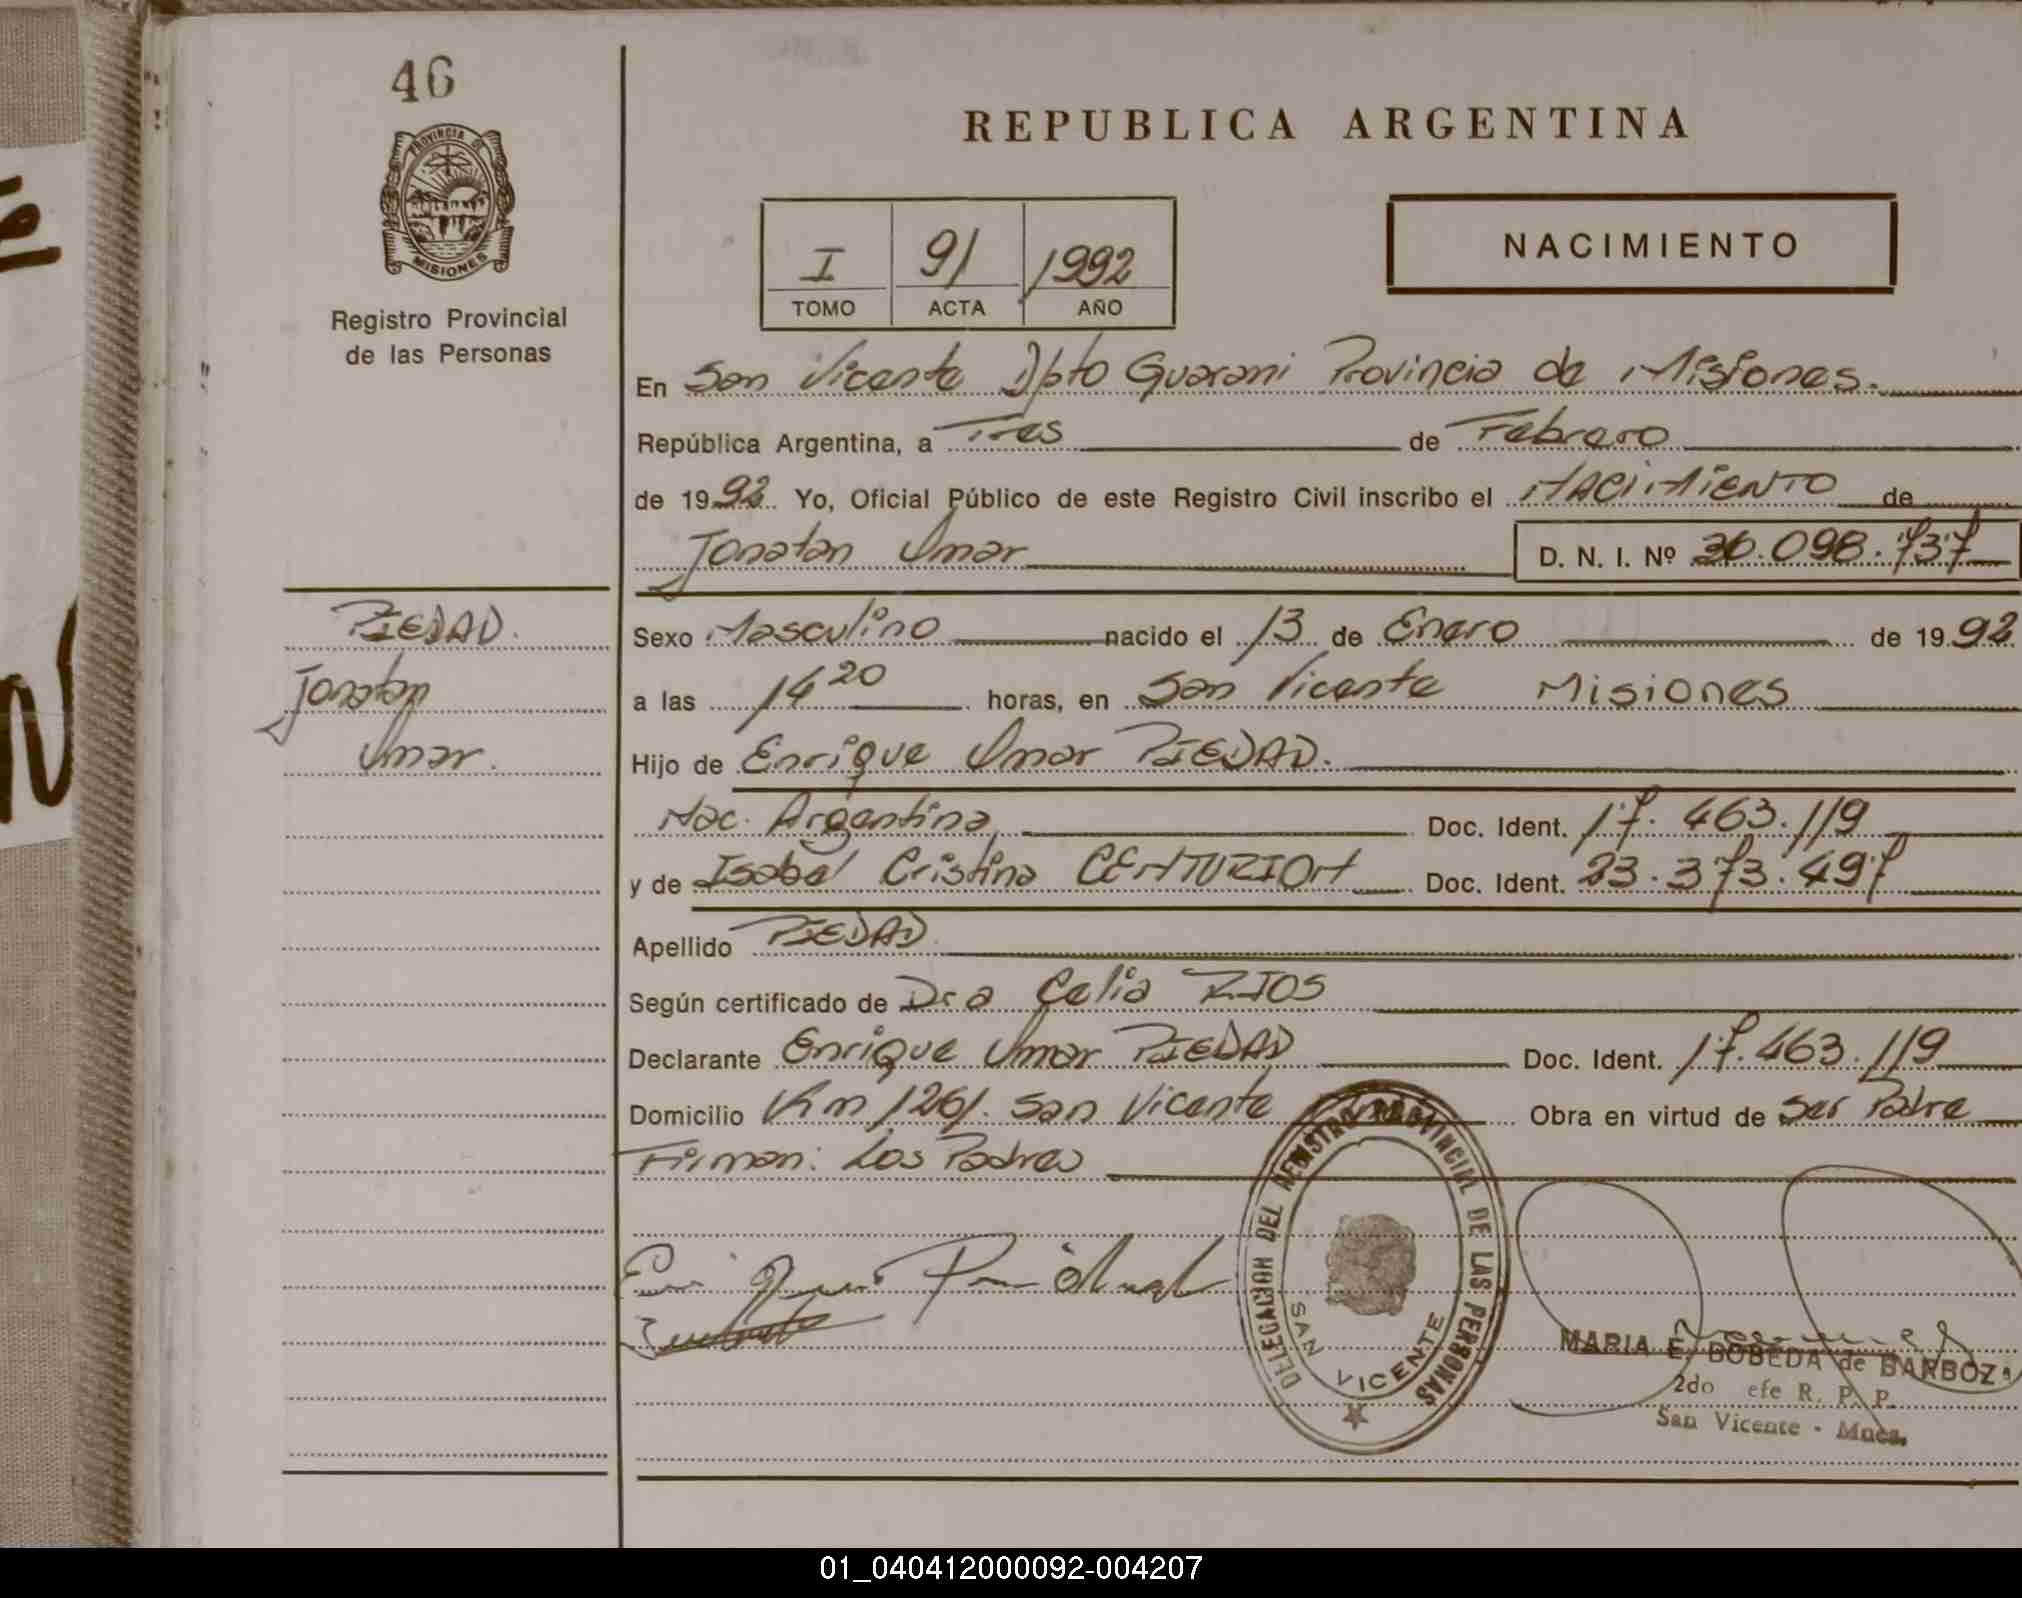 46
PROVINCIA DE
MISIONES
Registro Provincial
de las Personas
REPUBLICA ARGENTINA
I 91 1992
TOMO ACTA AÑO
NACIMIENTO
En San Vicente Dpto Guarani Provincia de Misiones.
República Argentina, a Tres de Febrero
de 1992 Yo, Oficial Público de este Registro Civil inscribo el NACIMIENTO de
Jonatan Umar D. N. I. Nº 36.098.737
PIEDAD.
Jonatan
Umar.
Sexo Masculino nacido el 13 de Enero de 1992
a las 14 20 horas, en San Vicente Misiones
Hijo de Enrique Umar PIEDAD.
Nac. Argentina Doc. Ident. 17.463.119
y de Isabel Cristina CENTURION Doc. Ident. 23.373.497
Apellido PIEDAD
Según certificado de Dra Celia RIOS
Declarante Enrique Umar PIEDAD Doc. Ident. 17.463.119
Domicilio Km 1261. San Vicente Obra en virtud de Ser Padre
Firman: Los Padres
DELEGACION DEL REGISTRO PROVINCIAL DE LAS PERSONAS
SAN VICENTE
MARIA E. BOBEDA de BARBOZ
2do efe R. P. P.
San Vicente - Mnes.
01_040412000092-004207